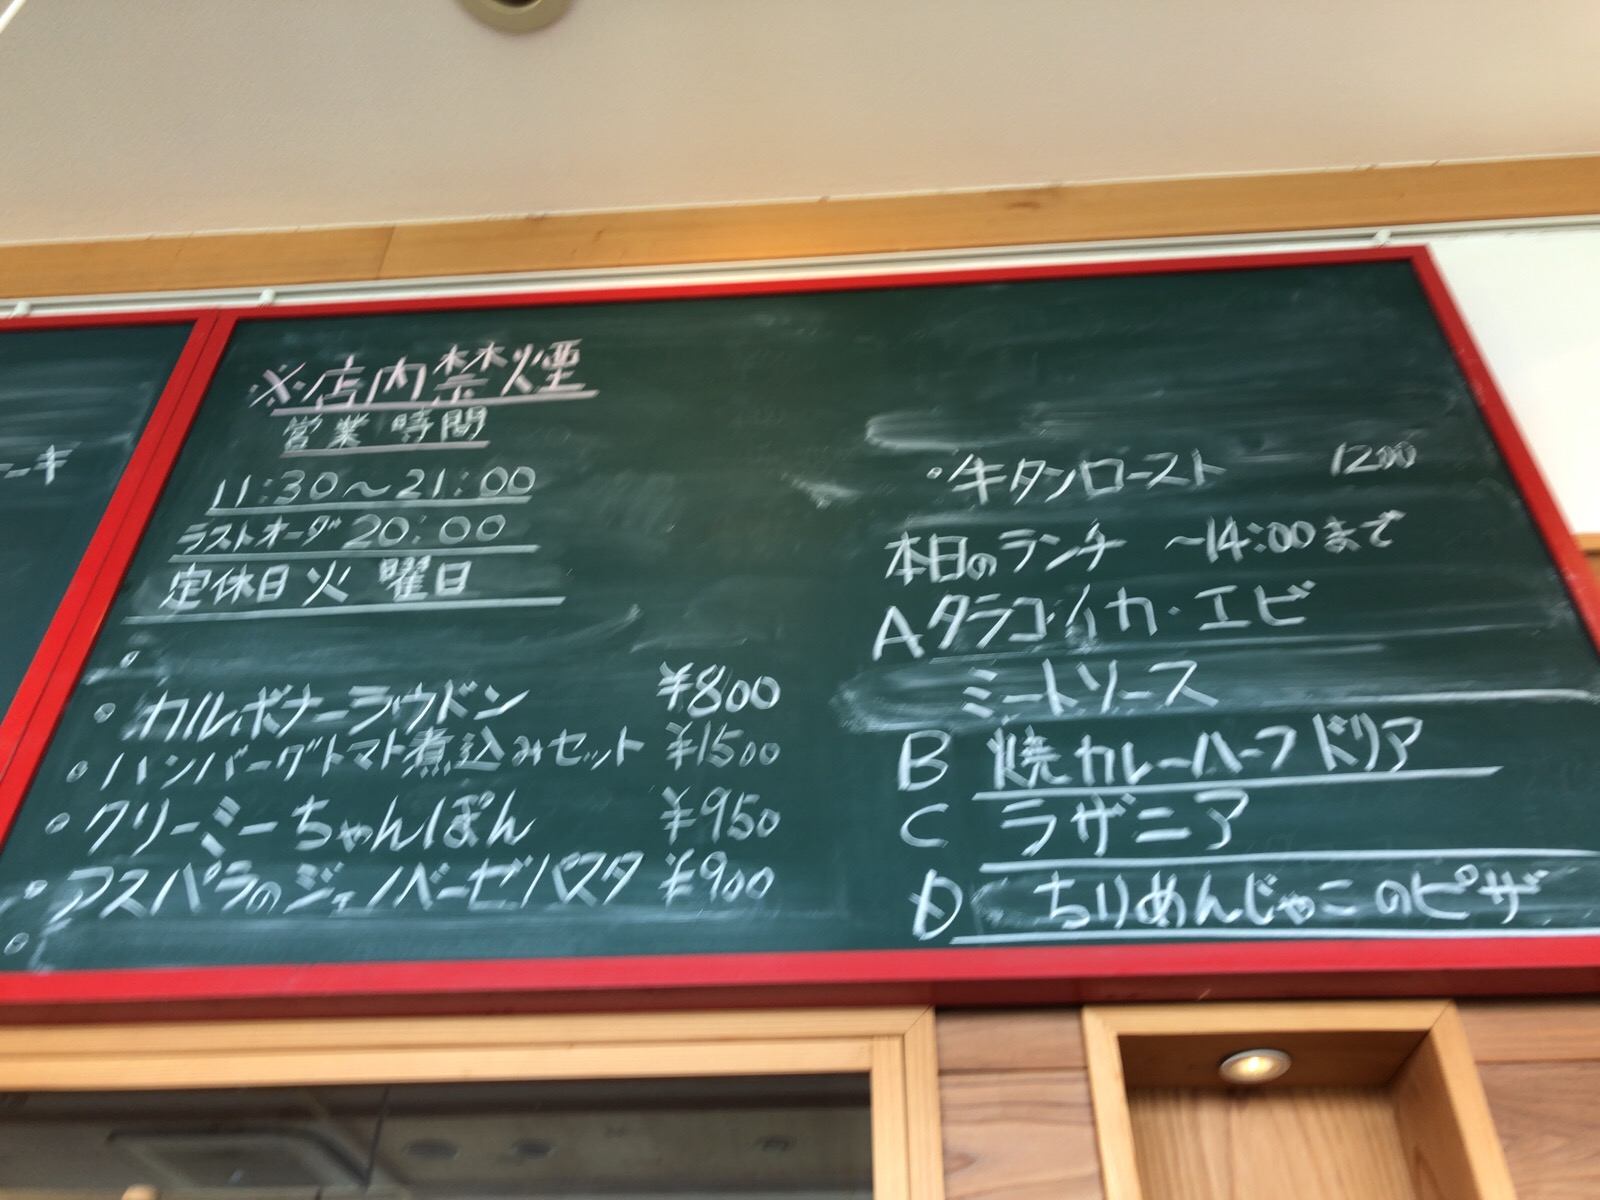 ーキ
※店内禁煙
営業時間
11:30〜21:00
ラストオーダ 20:00
定休日 火曜日
。カルボナーラウドン ¥800
。ハンバーグトマト煮込みセット ¥1500
。クリーミーちゃんぽん ¥950
。アスパラのジェノベーゼパスタ ¥900
。牛タンロースト 1200
本日のランチ 〜14:00まで
A タラコ・イカ・エビ
ミートソース
B 焼カレーハーフドリア
C ラザニア
D ちりめんじゃこのピザ